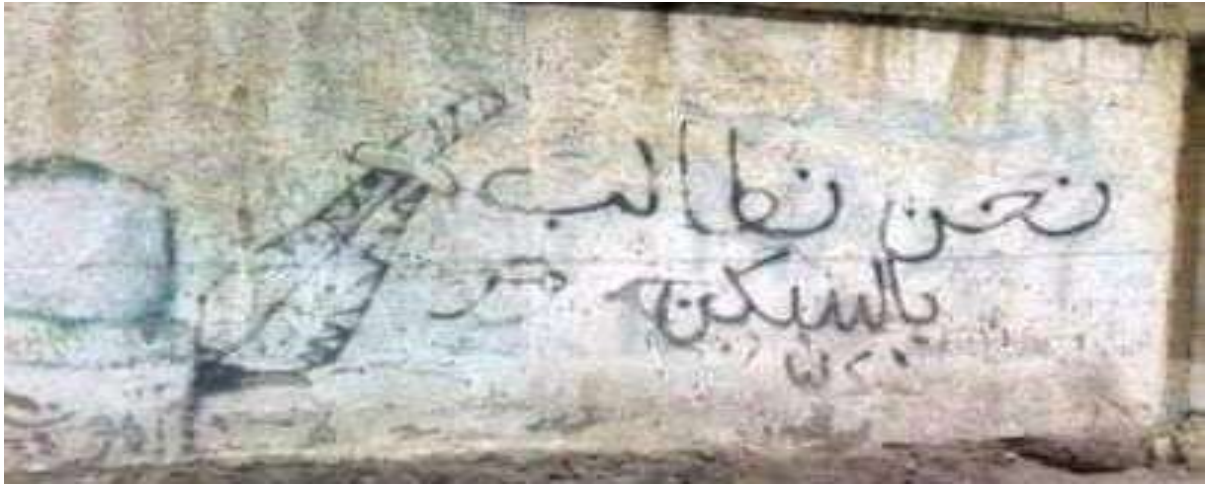 نحن نطالب
بالسكين